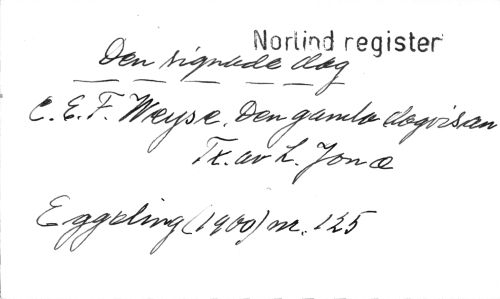 Norlind register
Den signade dag
C. E. F. Weyse. Den gamla dagvisan
Tx. av L. Jonæ
Eggeling (1900) nr. 125